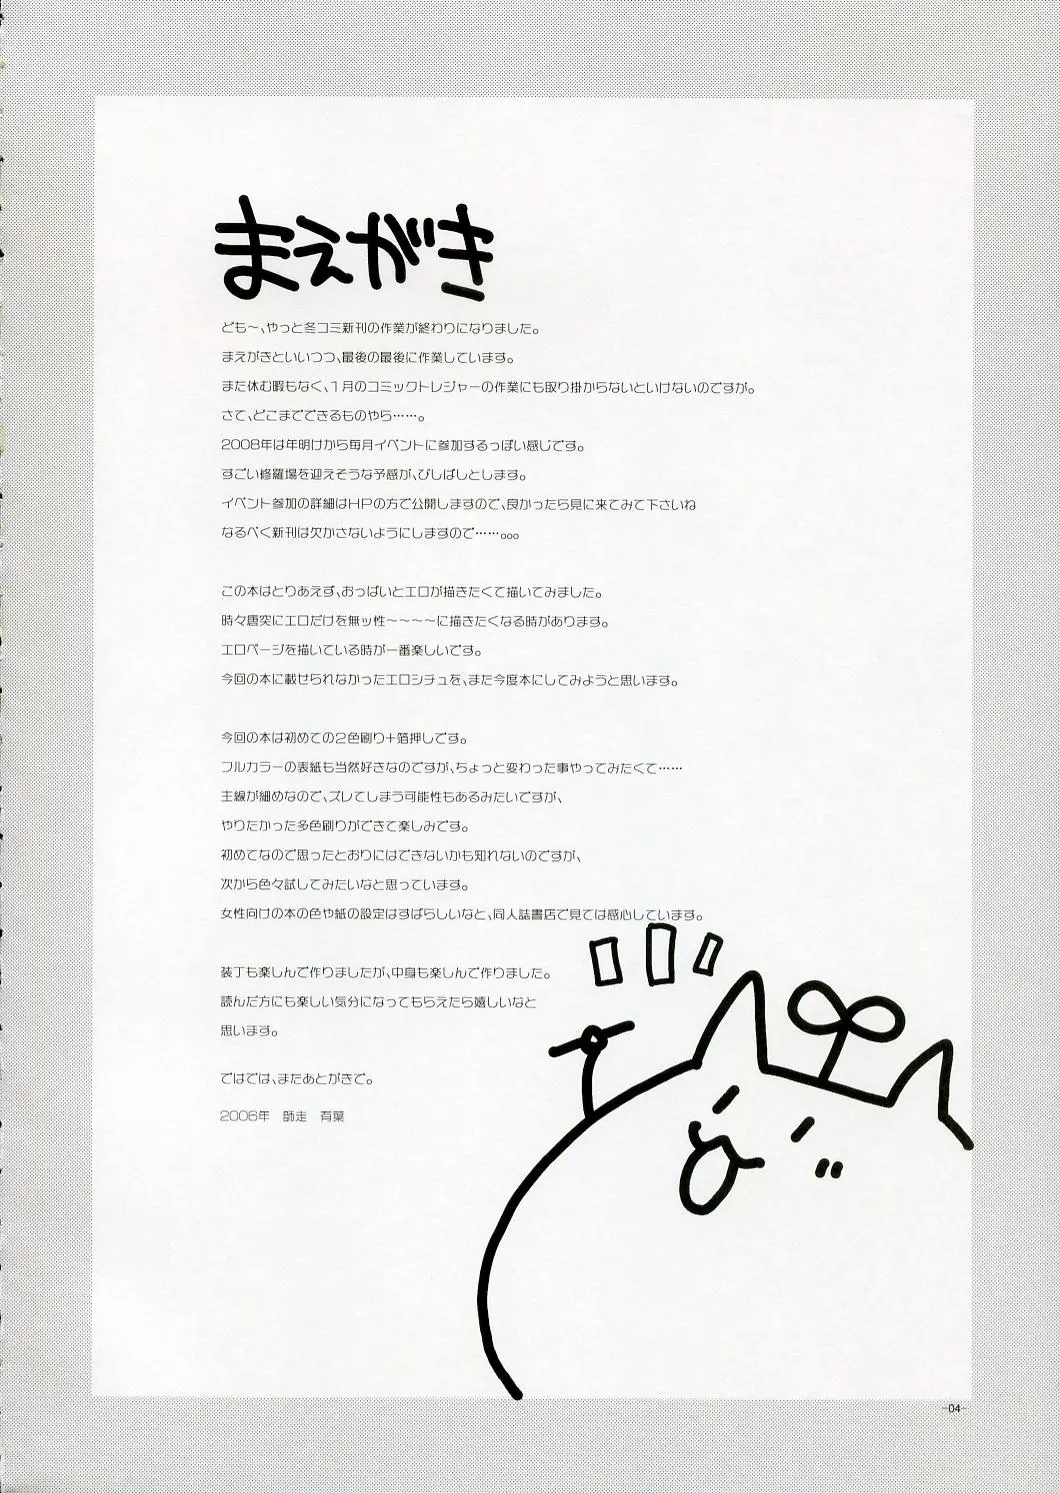 まえがき
ども～、やっと冬コミ新刊の作業が終わりになりました。
まえがきといいつつ、最後の最後に作業しています。
まだ休む暇もなく、1月のコミックトレジャーの作業にも取り掛からないといけないのですが。
さて、どこまでできるものやら……。
2008年は年明けから毎月イベントに参加するっぽい感じです。
すごい修羅場を迎えそうな予感が、びしばしとします。
イベント参加の詳細はHPの方で公開しますので、良かったら見に来てみて下さいね
なるべく新刊は欠かさないようにしますので……。。。
この本はとりあえず、おっぱいとエロが描きたくて描いてみました。
時々唐突にエロだけを無ッ性～～～～に描きたくなる時があります。
エロページを描いている時が一番楽しいです。
今回の本に載せられなかったエロシチュを、また今度本にしてみようと思います。
今回の本は初めての2色刷り＋箔押しです。
フルカラーの表紙も当然好きなのですが、ちょっと変わった事やってみたくて……
主線が細めなので、ズレてしまう可能性もあるみたいですが、
やりたかった多色刷りができて楽しみです。
初めてなので思ったとおりにはできないかも知れないのですが、
次から色々試してみたいなと思っています。
女性向けの本の色や紙の設定はすばらしいなと、同人誌書店で見ては感心しています。
装丁も楽しんで作りましたが、中身も楽しんで作りました。
読んだ方にも楽しい気分になってもらえたら嬉しいなと
思います。
ではでは、またあとがきで。
2006年　師走　有葉
-04-